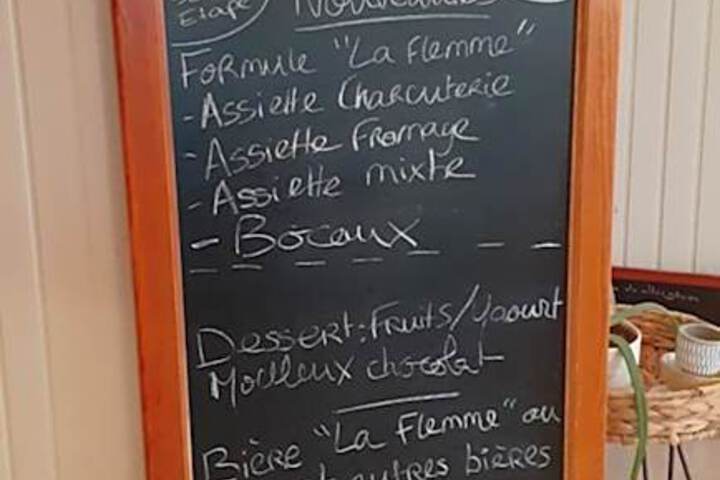 Etape
Nouveautés
Formule "La Flemme"
- Assiette Charcuterie
- Assiette Fromage
- Assiette mixte
- Bocaux
Dessert: Fruits/Yaourt
Moelleux chocolat
Bière "La Flemme" au
autres bières